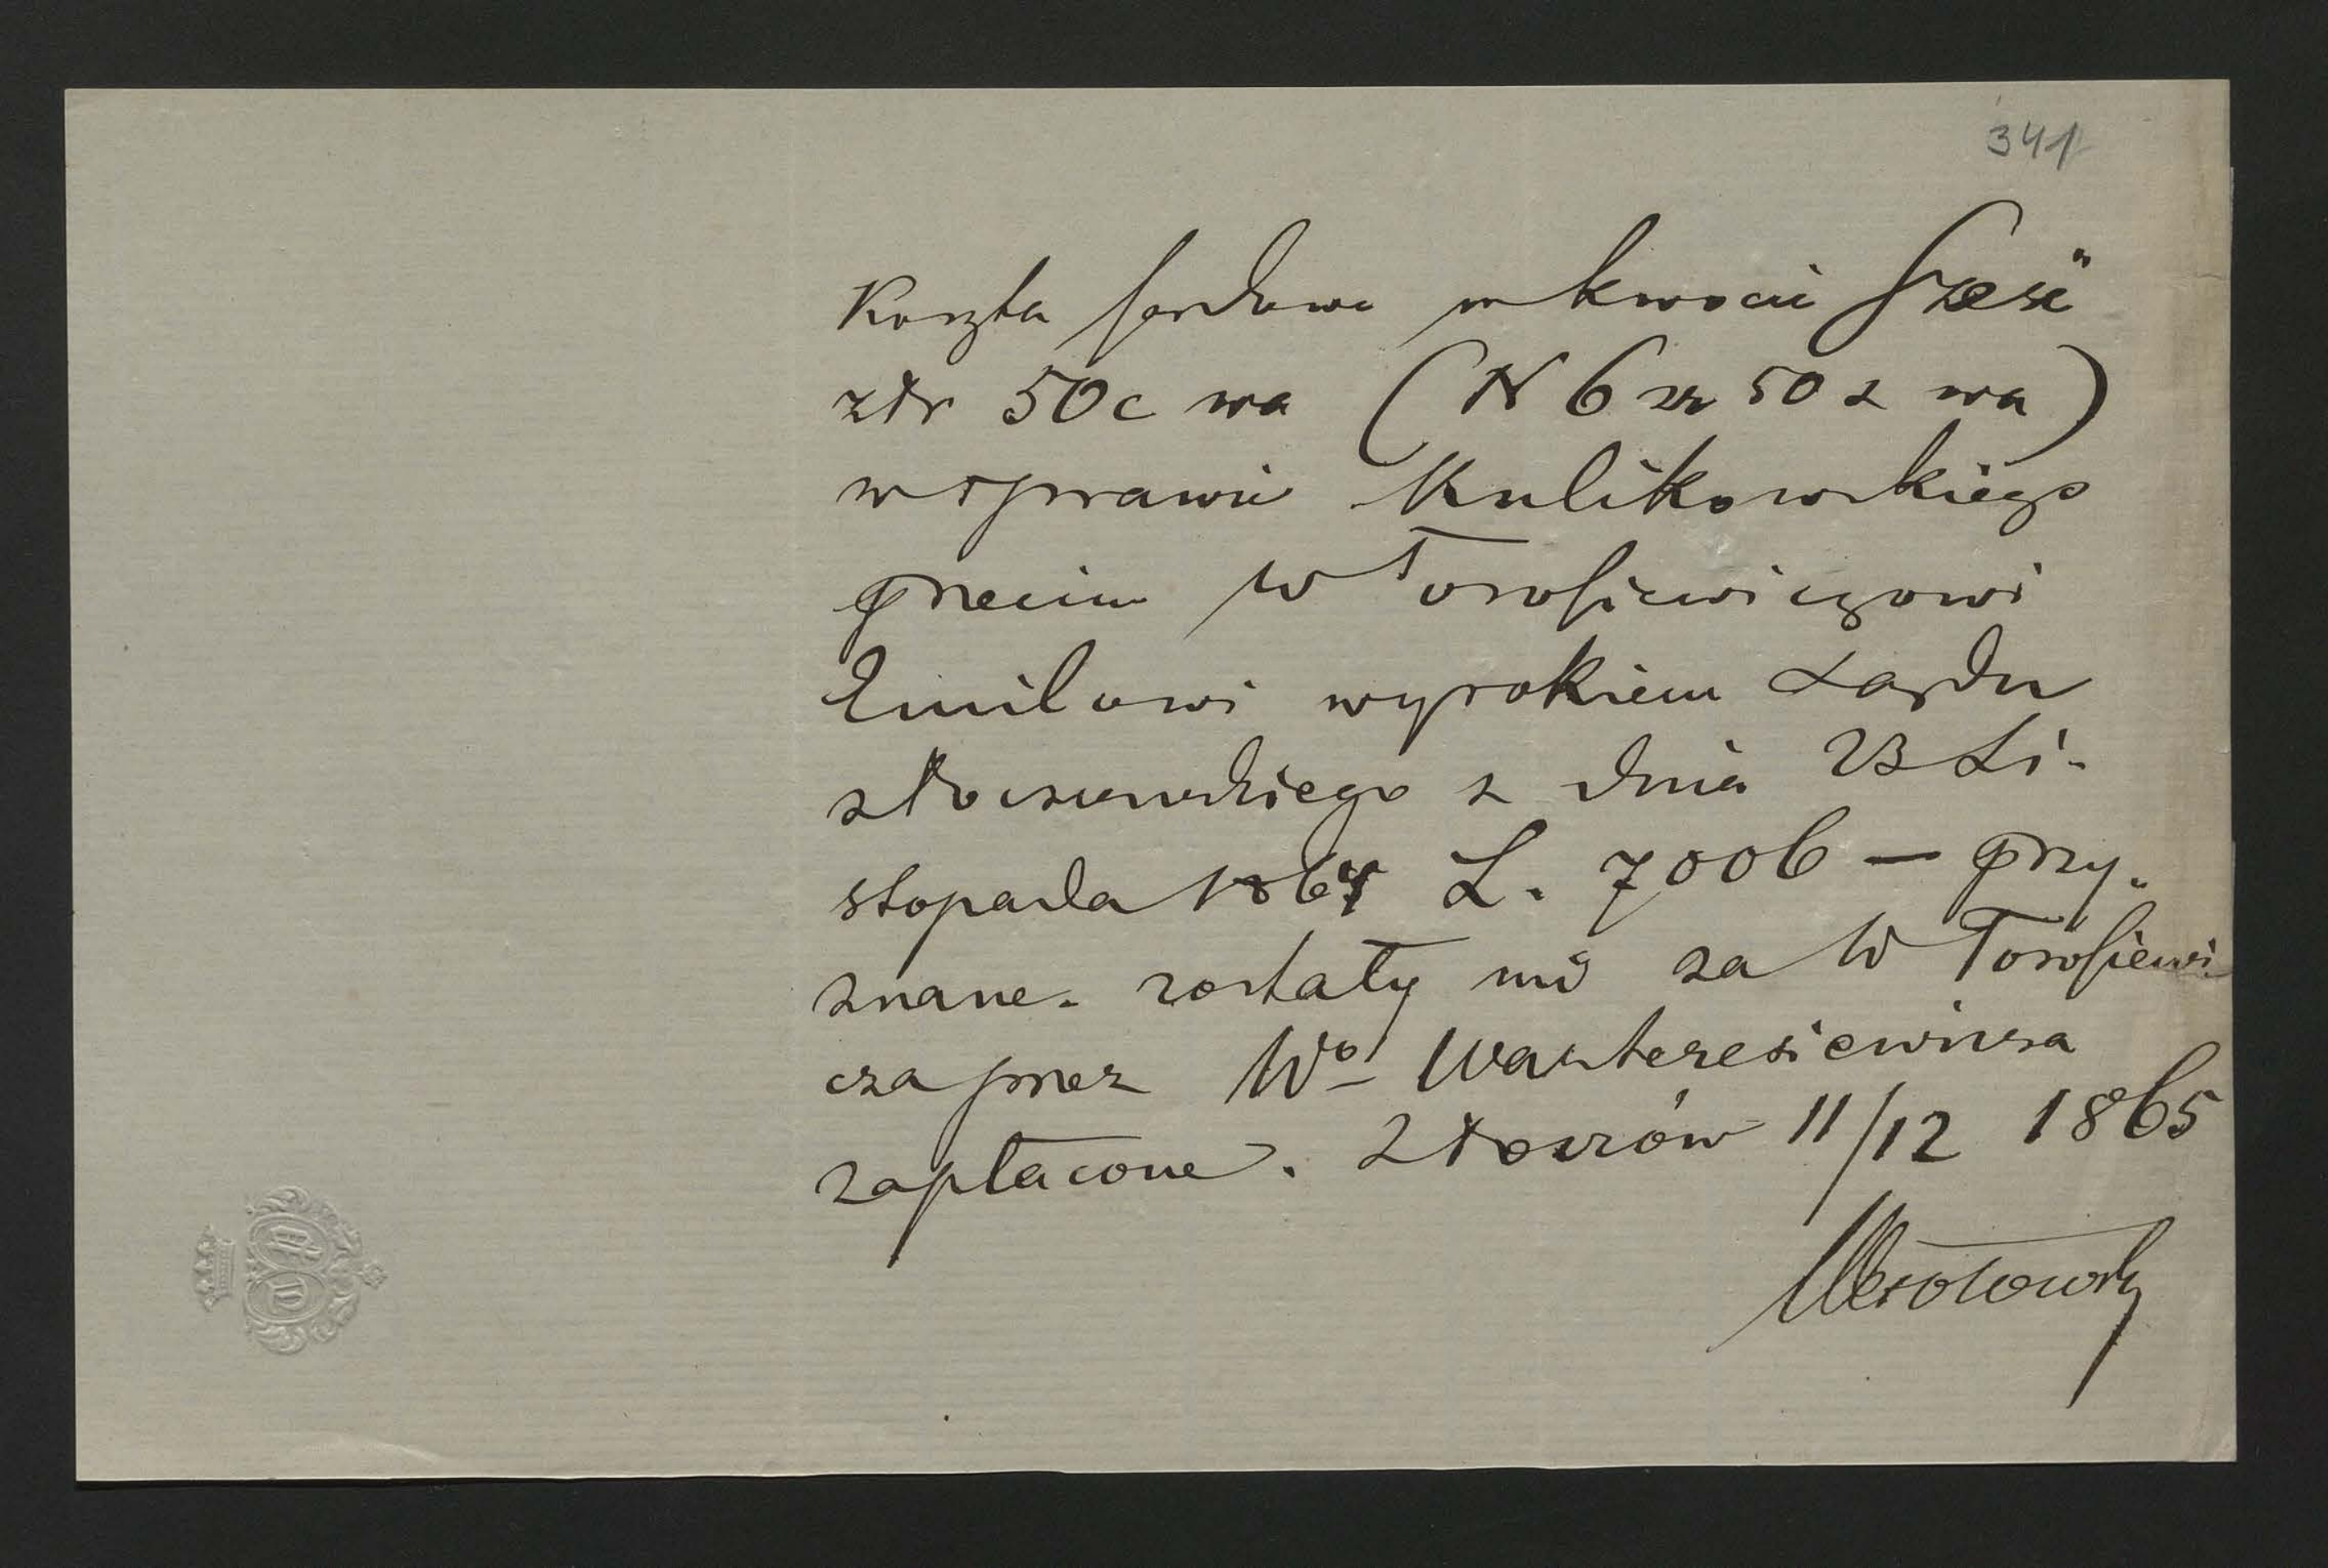 341
Koszta sądowe w kwocie sześć
złr 50 c wa (N 6 zr 50 c wa)
w sprawie Kulikowskiego
przeciw W Torosiewiczowi
Emilowi wyrokiem Sądu
złoczowskiego z dnia 23 Li-
stopada 1864 L. 7006 — przy-
znane. zostały mi za W Torosiewi
cza przez Wo Warteresiewicza
zapłacone. Złoczów 11/12 1865